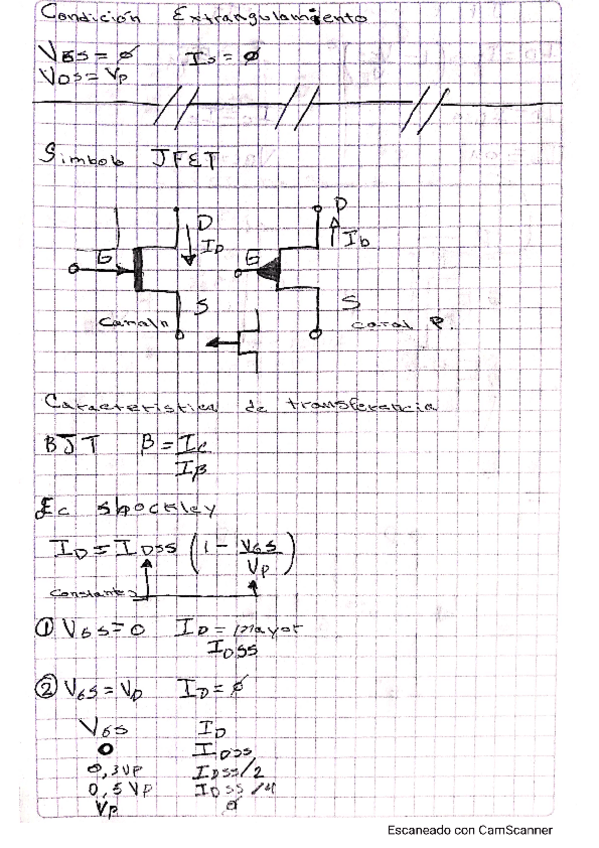 Condición Extrangulamiento
VGS = ∅ IS = ∅
VDS = VP
Simbolo JFET
D D
ID Ib
G G
S S
Canal n canal P.
Caracteristica de transferencia
BJT β = Ic/Iβ
Ec Shockley
ID = IDSS (1 - VGS/VP)
Constantes
① VGS = 0 ID = mayor
IDSS
② VGS = VP ID = ∅
VGS ID
0 IDSS
0,3VP IDSS/2
0,5VP IDSS/4
VP ∅
Escaneado con CamScanner